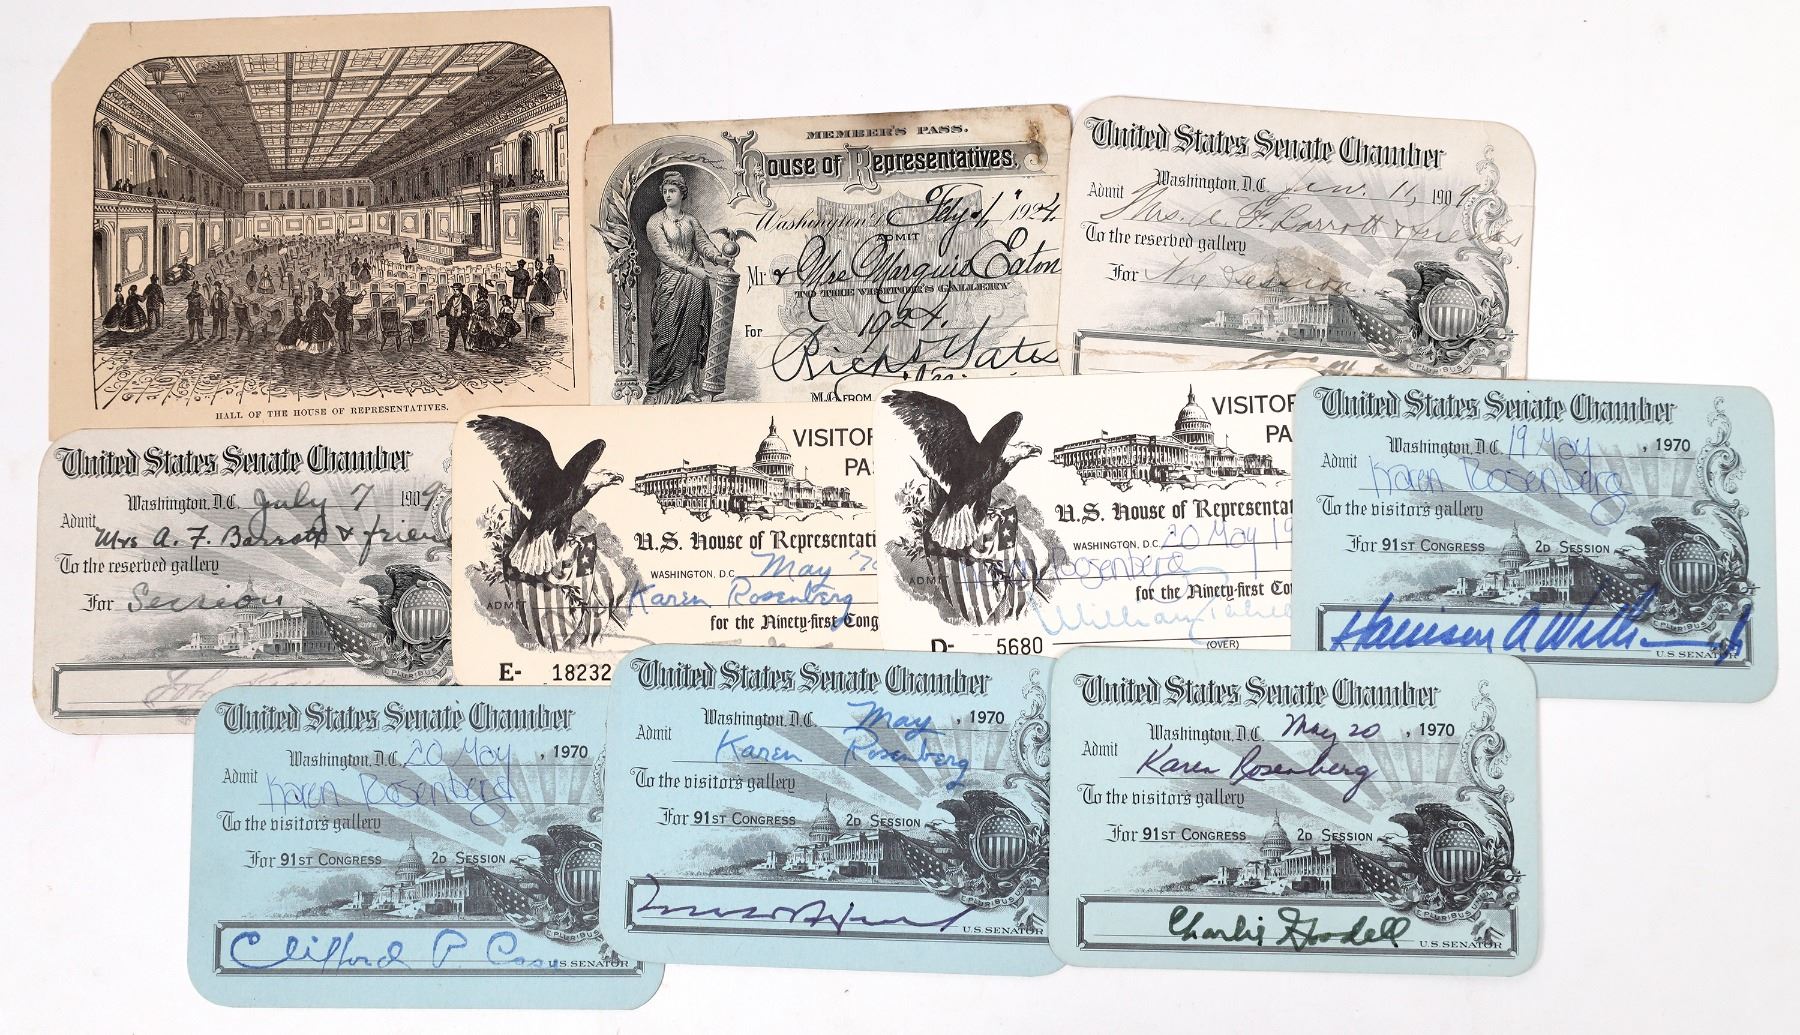 HALL OF THE HOUSE OF REPRESENTATIVES.
MEMBER'S PASS.
House of Representatives.
Washington, Feby 1st 1924
ADMIT
Mr & Mrs Marquis Eaton
TO THE VISITOR'S GALLERY
For 1924.
Rich d Yates
M.C. FROM
United States Senate Chamber
Washington, D.C. Jan. 11, 1909
Admit Mrs. A F. Barrott & friends
To the reserved gallery
For The Session
E PLURIBUS
United States Senate Chamber
Washington, D.C. July 7 1909
Admit Mrs A. F. Barrott & frien
To the reserved gallery
For Session
E PLURIBUS
VISITOR
PA
U.S. House of Representati
WASHINGTON, D.C. May '70
ADMIT Karen Rosenberg
for the Ninety-first Cong
E- 18232
VISITOR
PA
U.S. House of Representat
WASHINGTON, D.C. 20 May 19
ADMIT Karen Rosenberg
for the Ninety-first Co
William
D- 5680
(OVER)
United States Senate Chamber
Washington, D.C. 19 May, 1970
Admit Karen Rosenberg
To the visitors gallery
For 91ST CONGRESS 2D SESSION
E PLURIBUS UNUM
Harrison A Williams Jr
U.S. SENATOR
United States Senate Chamber
Washington, D.C. 20 May, 1970
Admit Karen Rosenberg
To the visitors gallery
For 91ST CONGRESS 2D SESSION
E PLURIBUS
Clifford P. Case
U.S. SENATOR
United States Senate Chamber
Washington, D.C. May, 1970
Admit Karen Rosenberg
To the visitors gallery
For 91ST CONGRESS 2D SESSION
E PLURIBUS UN
U.S. SENATOR
United States Senate Chamber
Washington, D.C. May 20, 1970
Admit Karen Rosenberg
To the visitors gallery
For 91ST CONGRESS 2D SESSION
E PLURIBUS UNUM
Charlie Goodell
U.S. SENATOR